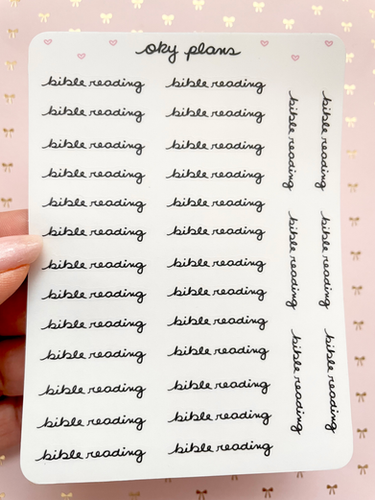 oky plans
bible reading bible reading
bible reading bible reading
bible reading bible reading
bible reading bible reading
bible reading bible reading
bible reading bible reading
bible reading bible reading
bible reading bible reading
bible reading bible reading
bible reading bible reading
bible reading bible reading
bible reading bible reading
bible reading bible reading
bible reading
bible reading
bible reading
bible reading
bible reading
bible reading